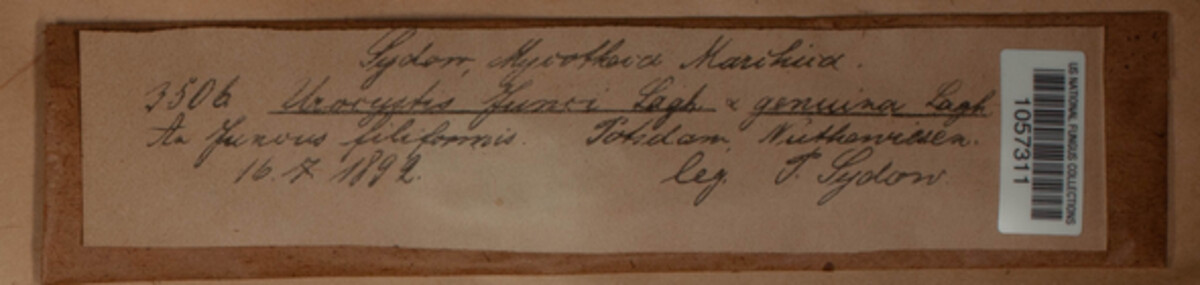 Sydow, Mycotheca Marchica.
3506 Urocystis Junci Lagh. α genuina Lagh.
An Juncus filiformis. Potsdam, Nuthewiesen.
16. 7. 1892. leg. P. Sydow.
US NATIONAL FUNGUS COLLECTIONS
1057311